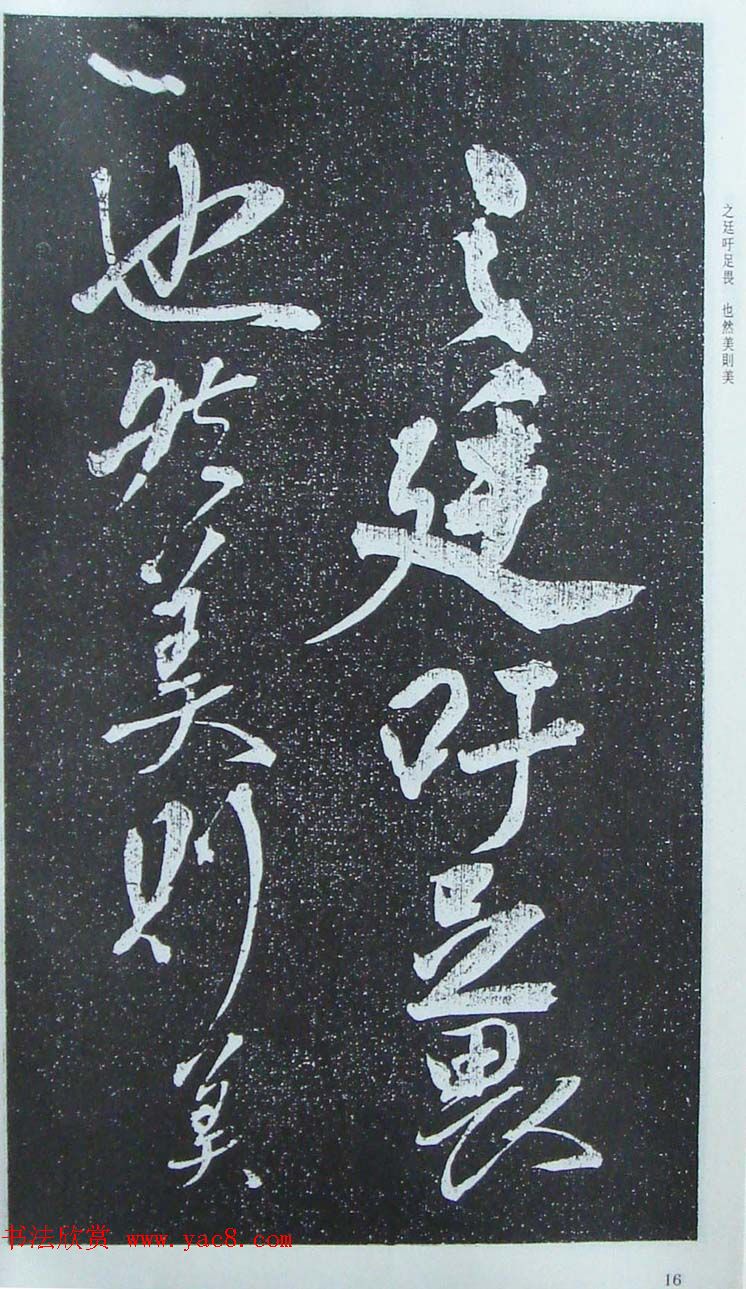 之廷吁足畏
也然美則美
之廷吁足畏 也然美則美
书法欣赏 www.yac8.com
16